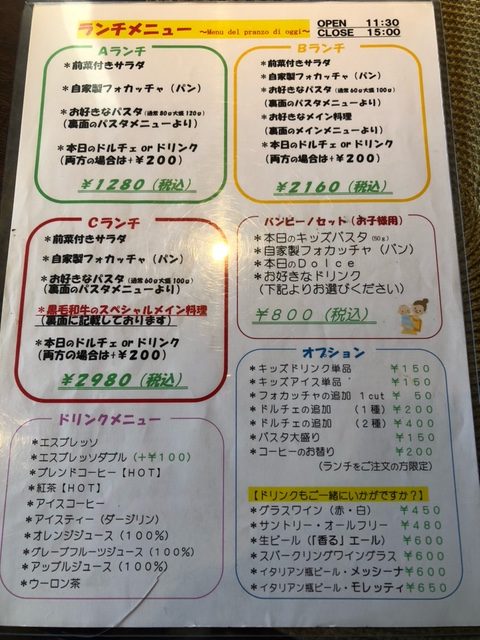 ランチメニュー ～Menu del pranzo di oggi～
OPEN 11:30
CLOSE 15:00
Aランチ
＊前菜付きサラダ
＊自家製フォカッチャ（パン）
＊お好きなパスタ（通常80g大盛120g）
（裏面のパスタメニューより）
＊本日のドルチェ or ドリンク
（両方の場合は＋￥200）
￥1280（税込）
Bランチ
＊前菜付きサラダ
＊自家製フォカッチャ（パン）
＊お好きなパスタ（通常60g大盛100g）
（裏面のパスタメニューより）
＊お好きなメイン料理
（裏面のメインメニューより）
＊本日のドルチェ or ドリンク
（両方の場合は＋￥200）
￥2160（税込）
Cランチ
＊前菜付きサラダ
＊自家製フォカッチャ（パン）
＊お好きなパスタ（通常60g大盛100g）
（裏面のパスタメニューより）
＊黒毛和牛のスペシャルメイン料理
（裏面に記載しております）
＊本日のドルチェ or ドリンク
（両方の場合は＋￥200）
￥2980（税込）
バンビーノセット（お子様用）
＊本日のキッズパスタ（50g）
＊自家製フォカッチャ（パン）
＊本日のDolce
＊お好きなドリンク
（下記よりお選びください）
￥800（税込）
ドリンクメニュー
＊エスプレッソ
＊エスプレッソダブル（＋￥100）
＊ブレンドコーヒー【HOT】
＊紅茶【HOT】
＊アイスコーヒー
＊アイスティー（ダージリン）
＊オレンジジュース（100％）
＊グレープフルーツジュース（100％）
＊アップルジュース（100％）
＊ウーロン茶
オプション
＊キッズドリンク単品 ￥150
＊キッズアイス単品 ￥150
＊フォカッチャの追加 1cut ￥50
＊ドルチェの追加（1種）￥200
＊ドルチェの追加（2種）￥400
＊パスタ大盛り ￥150
＊コーヒーのお替り ￥200
（ランチをご注文の方限定）
【ドリンクもご一緒にいかがですか？】
＊グラスワイン（赤・白）￥450
＊サントリー・オールフリー ￥480
＊生ビール（「香る」エール）￥600
＊スパークリングワイングラス ￥600
＊イタリアン瓶ビール・メッシーナ ￥600
＊イタリアン瓶ビール・モレッティ ￥650